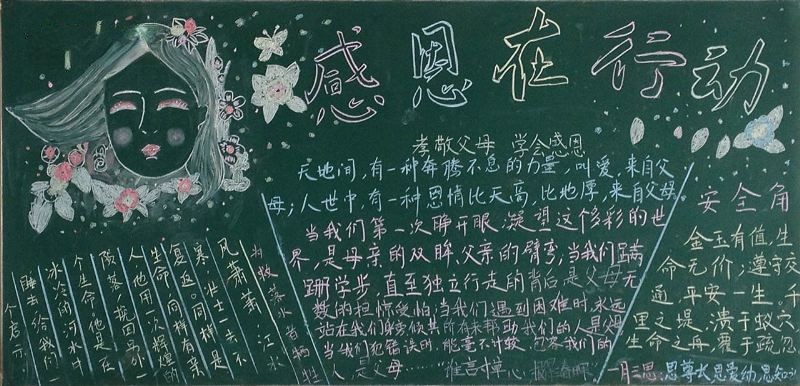 感恩在行动
孝敬父母 学会感恩
天地间,有一种奔腾不息的力量,叫爱,来自父
母;人世中,有一种恩情比天高,比地厚,来自父母。
当我们第一次睁开眼,凝望这个多彩的世
界,是母亲的双眸,父亲的臂弯,当我们蹒
跚学步,直至独立行走的背后是父母无
数的担惊受怕,当我们遇到困难时,永远
站在我们身旁倾其所有来帮助我们的人是父母
当我们犯错误时,能毫不计较,包容我们的
人是父母……谁言寸草心,报
安全角
金玉有值,生
命无价;遵守交
通,平安一生。千
里之堤,溃于蚁穴,
生命之舟,覆于疏忽
一月三思:思尊长,思爱幼,思知
为救落水者牺牲
风萧萧,江水
寒,壮士一去不
复返。同样是
人,他用一次辉煌的
生命,挽回另外一
个生命。他是在
冰冷的河水中
睡去,给我们一
个启示